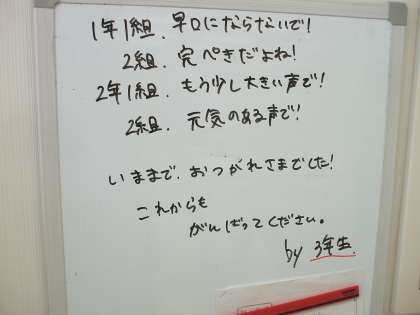 1年1組. 早口にならないで!
2組. 完ぺきだよね!
2年1組. もう少し大きい声で!
2組. 元気のある声で!
いままで. おつかれさまでした!
これからも
がんばってください。
by 3年生.